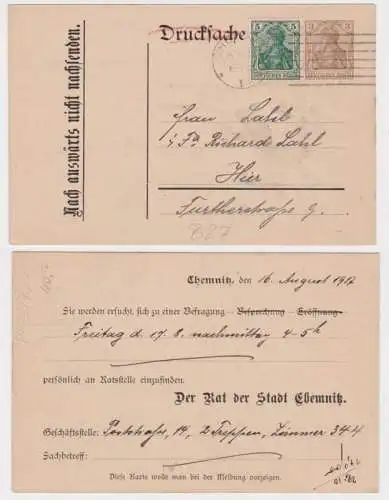 Drucksache
Nach auswärts nicht nachsenden.
5 5
3 3
DEUTSCHES REICH
Frau Lahl
Fa Richard Lahl
Hier
Furtherstraße 9.
B27
Chemnitz, den 16. August 1917
Sie werden ersucht, sich zu einer Befragung – Besprechung – Eröffnung –
Freitag d 17. 8. nachmittag 4–5h
persönlich an Ratstelle einzufinden.
Der Rat der Stadt Chemnitz.
Geschäftsstelle: Poststraße, 14, 2 Treppen, Zimmer 344
Sachbetreff:
Diese Karte wolle man bei der Meldung vorzeigen.